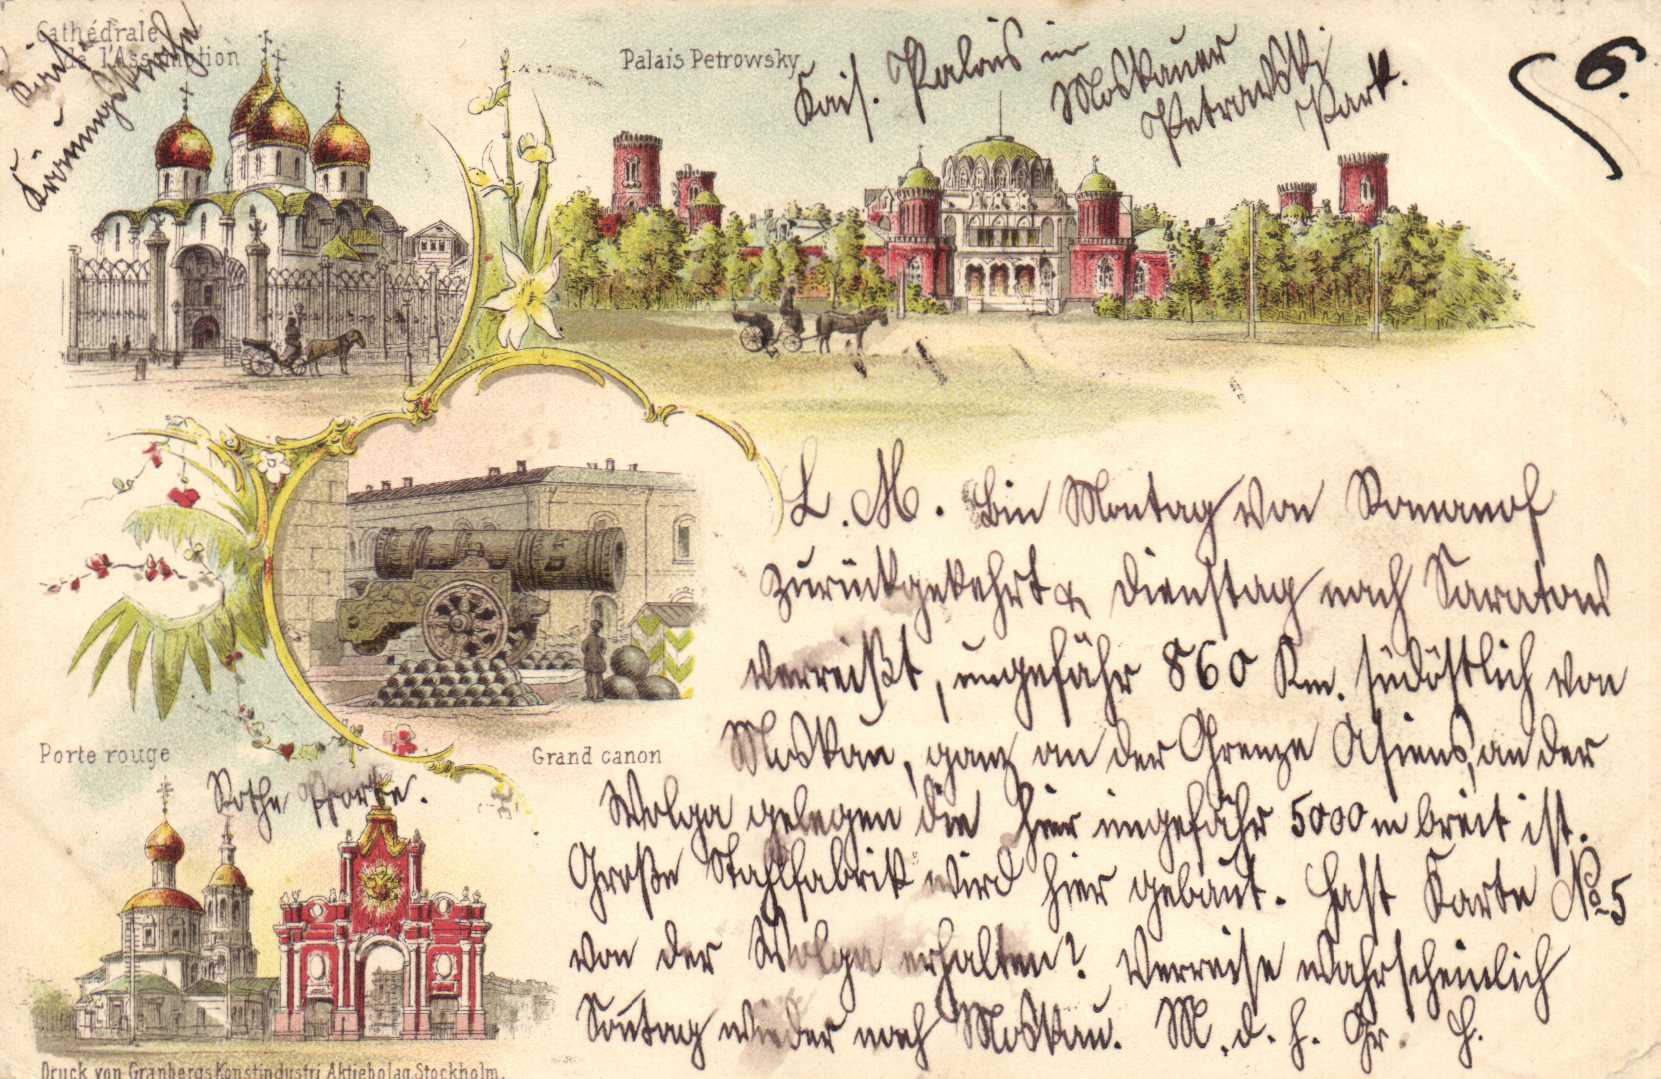 Cathédrale
de l'Assomption
Kais.
Krönungskirche
Palais Petrowsky
Kais. Palais im
Moskauer
Petrowski
Park.
6.
L. M. Bin Montag von Romanof
zurückgekehrt & Dienstag nach Saratow
verreißt, ungefähr 860 Km. südöstlich von
Moskau, ganz an der Grenze Asiens, an der
Wolga gelegen die hier ungefähr 5000 m breit ist.
Große Stahlfabrik wird hier gebaut. Hast Karte No 5
von der Wolga erhalten? Verreise wahrscheinlich
Sontag wieder nach Moskau. M. d. h. Gr. H.
Grand canon
Porte rouge
Rothe Pforte.
Druck von Granbergs Konstindustri Aktiebolag Stockholm.